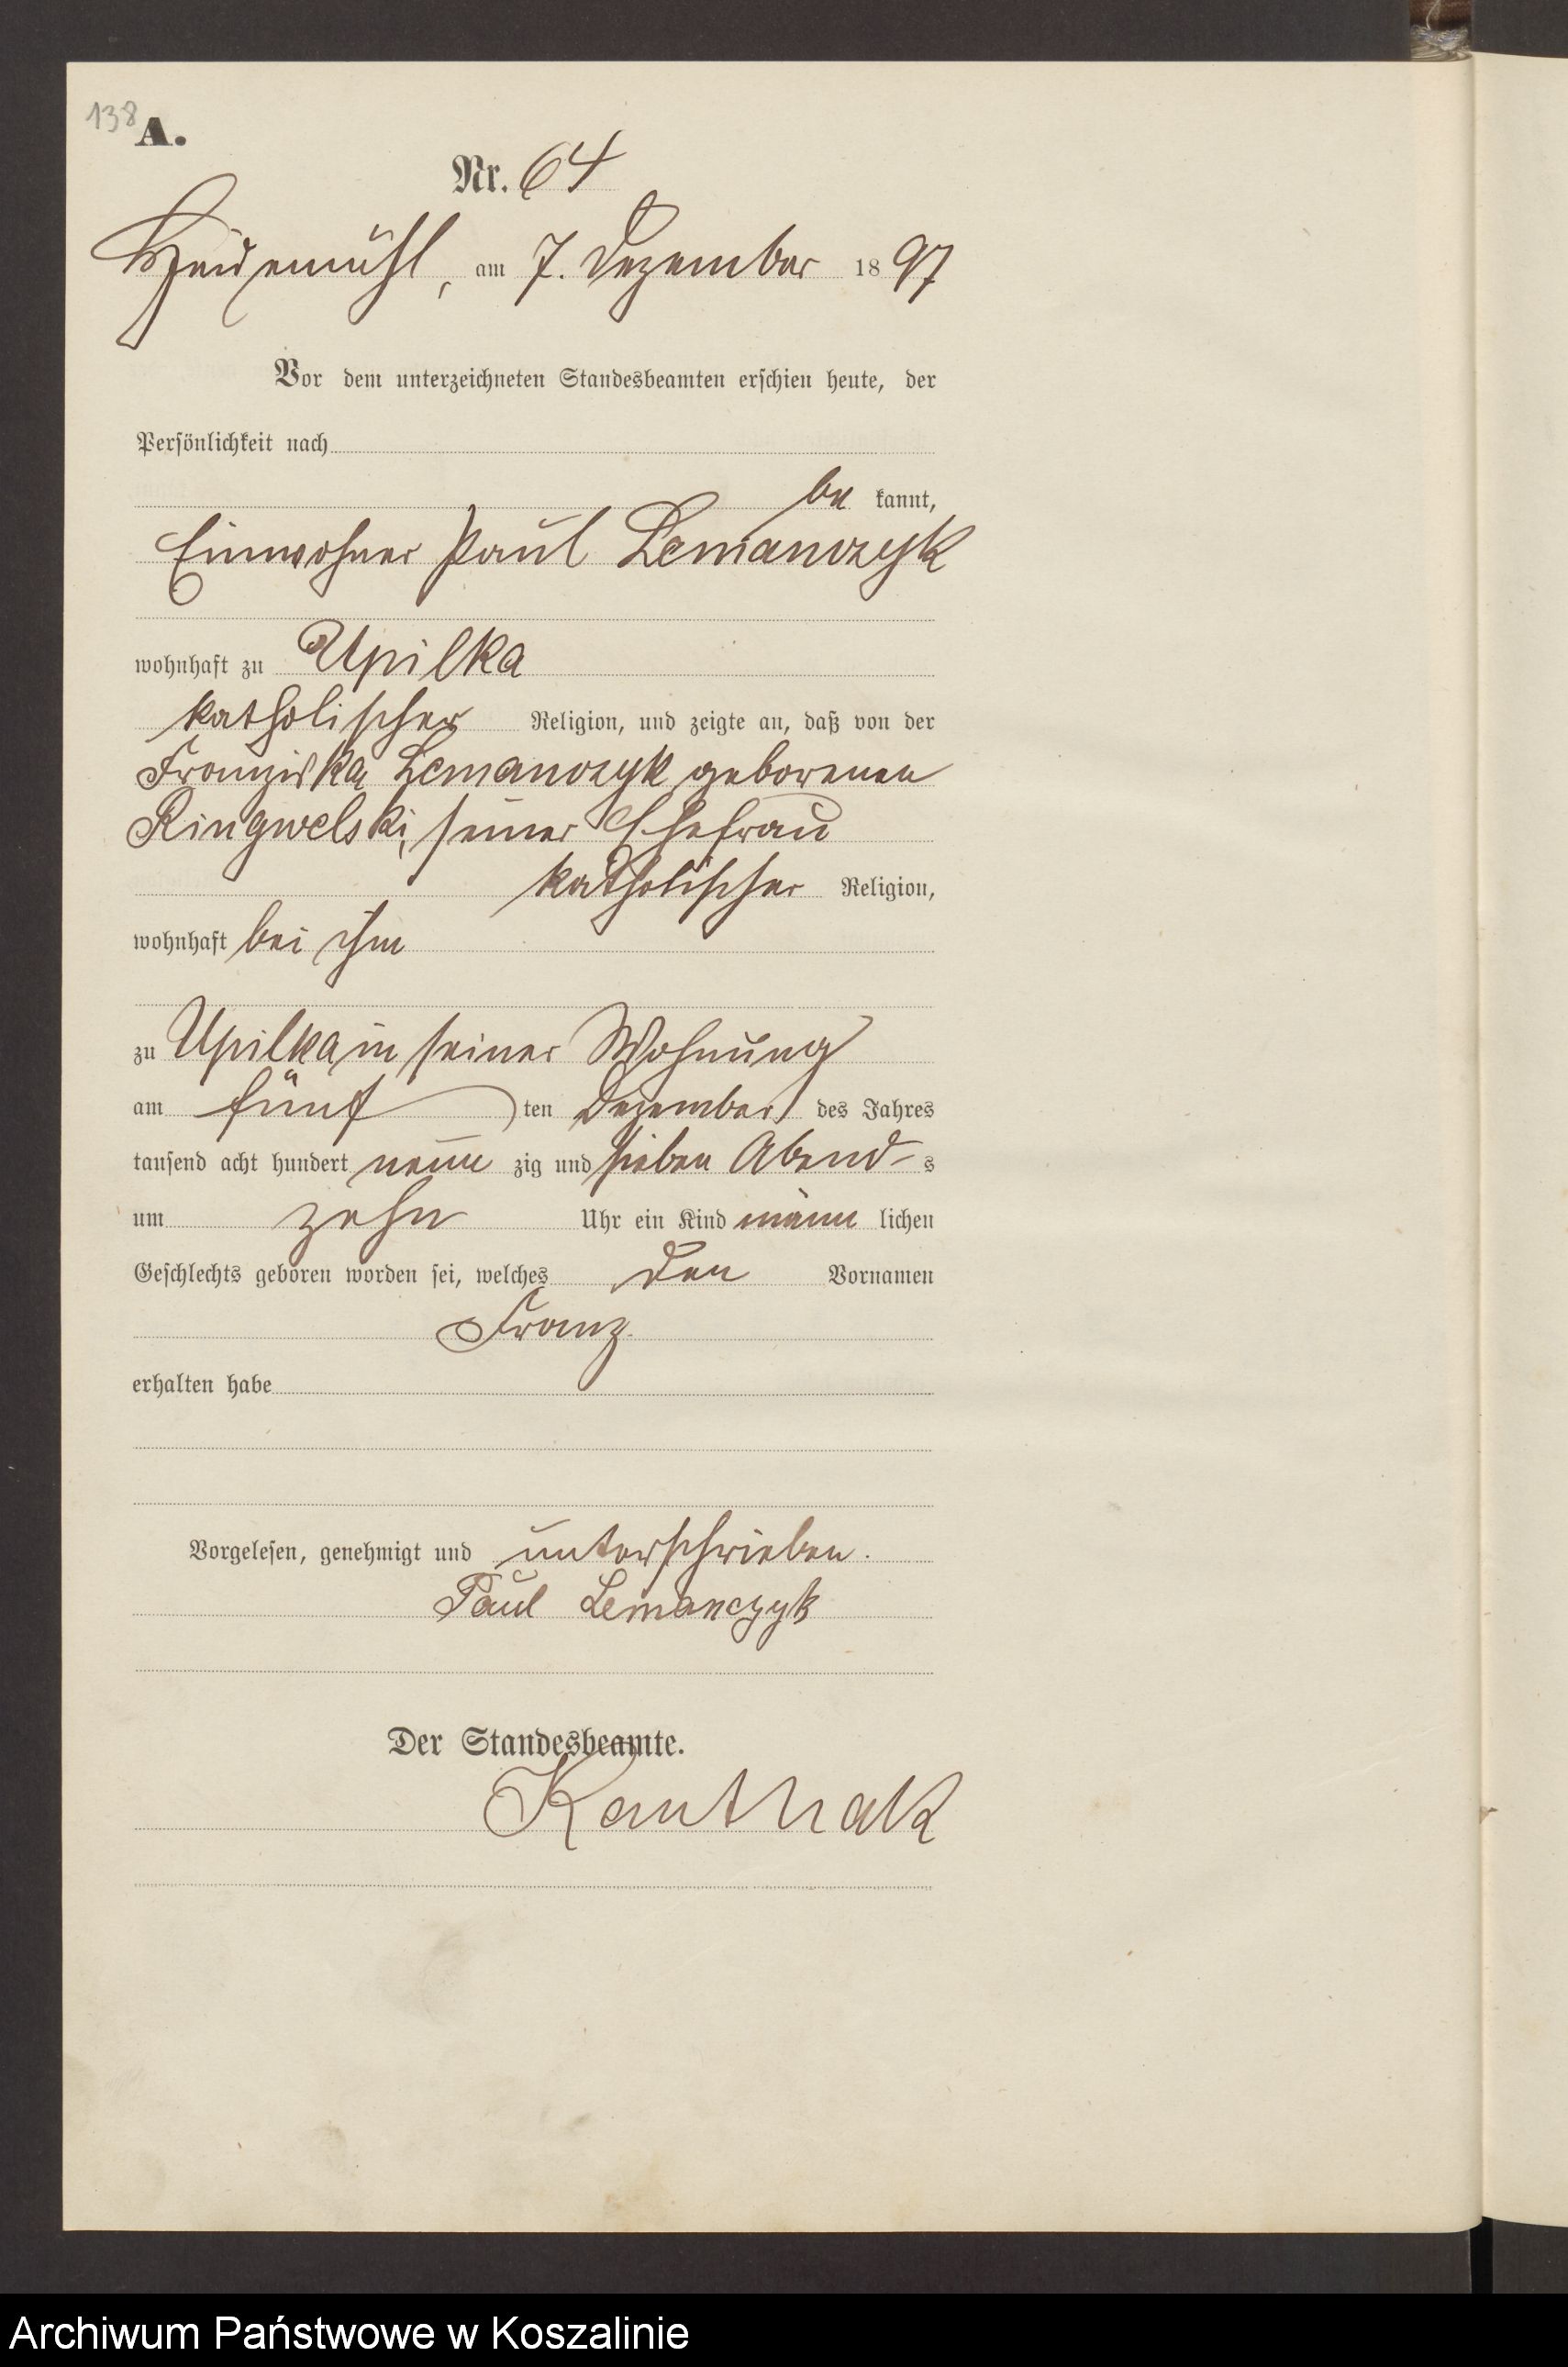 138
A.
Nr. 64
Heidemühl, am 7. Dezember 1897
Vor dem unterzeichneten Standesbeamten erschien heute, der
Persönlichkeit nach
be kannt,
Einwohner Paul Lemanczyk
wohnhaft zu Upilka
katholischer Religion, und zeigte an, daß von der
Franziska Lemanczyk geborenen
Ringwelski, seiner Ehefrau
katholischer Religion,
wohnhaft bei ihm
zu Upilka in seiner Wohnung
am fünf ten Dezember des Jahres
tausend acht hundert neun zig und sieben Abend s
um zehn Uhr ein Kind männ lichen
Geschlechts geboren worden sei, welches den Vornamen
Franz.
erhalten habe
Vorgelesen, genehmigt und unterschrieben.
Paul Lemanczyk
Der Standesbeamte.
Kanthak
Archiwum Państwowe w Koszalinie